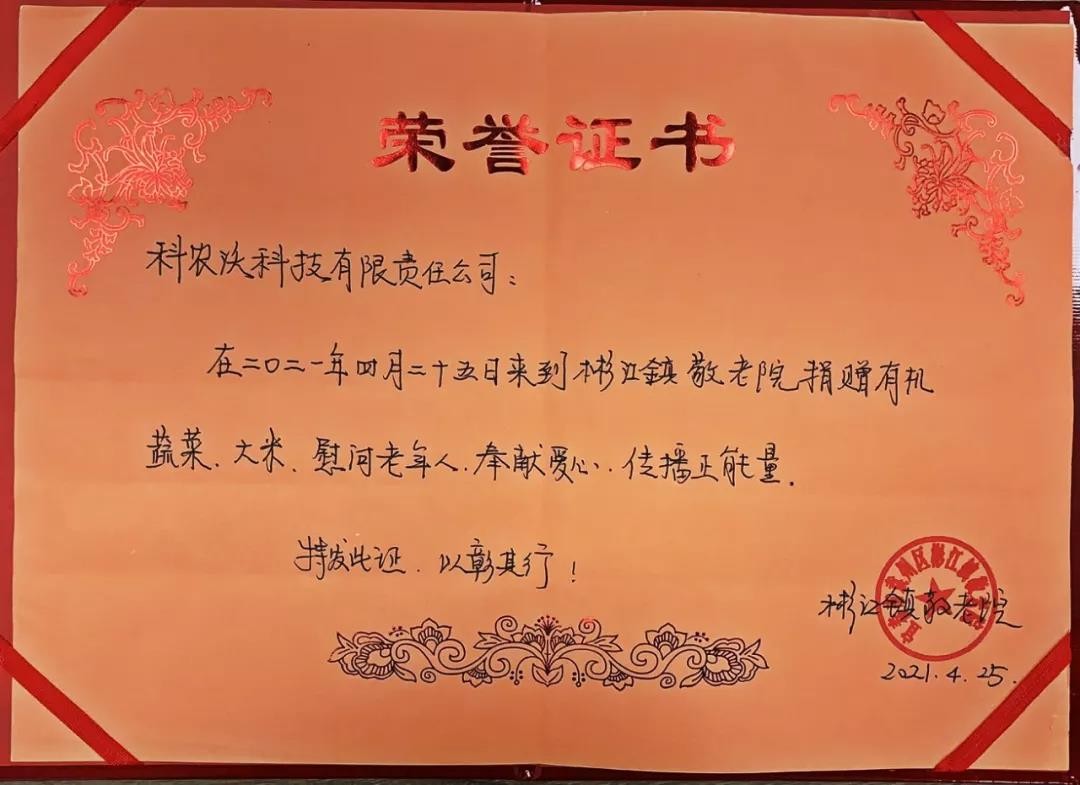 荣誉证书
科农沃科技有限责任公司:
在二〇二一年四月二十五日来到彬江镇敬老院捐赠有机
蔬菜、大米、慰问老年人、奉献爱心、传播正能量.
特发此证、以彰其行!
彬江镇敬老院
2021.4.25.